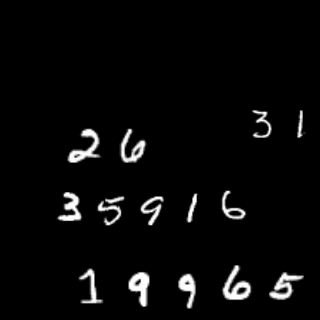 31
26
35916
19965